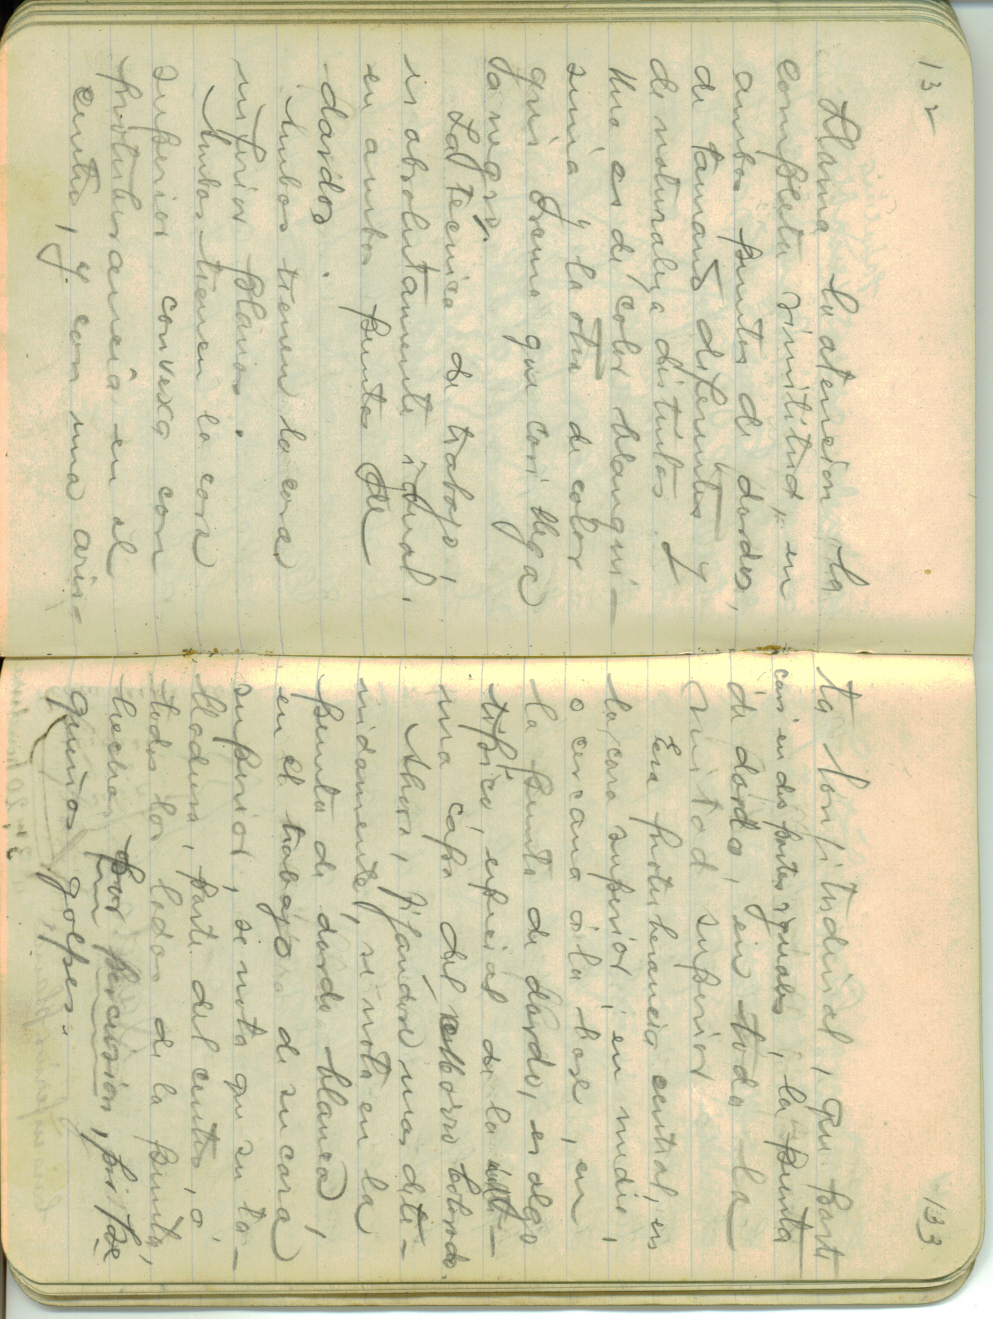 132
Llama la atención la
completa similitud, en
ambas puntas de dardos,
de tamaños diferentes y
de naturaleza distintas. Y
Una es de color blanqui-
sima y la otra de color
gris oscuro que casi llega
a negro.
La técnica de trabajo,
es absolutamente igual,
en ambas puntas de
dardos.
Ambas tienen la cara
inferior plana.
Ambas tienen la cara
superior convexa con
protuberancia en el
centro, y con una aris-
133
ta longitudinal, que parte
casi en dos partes iguales, la punta
de dardo, en toda la
mitad superior
Esa protuberancia central, en
la cara superior, en medio,
o cercana a la base, en
la punta de dardo, es algo
típico, especial de la
una capa del
Ahora, fijándose mas dete-
nidamente, se nota en la
punta de dardo blanca,
en el trabajo de su cara
superior, se nota que su ta-
lladura, parte del centro, a
todos los lados de la punta,
hechas por percusion, por pe-
queños golpes.